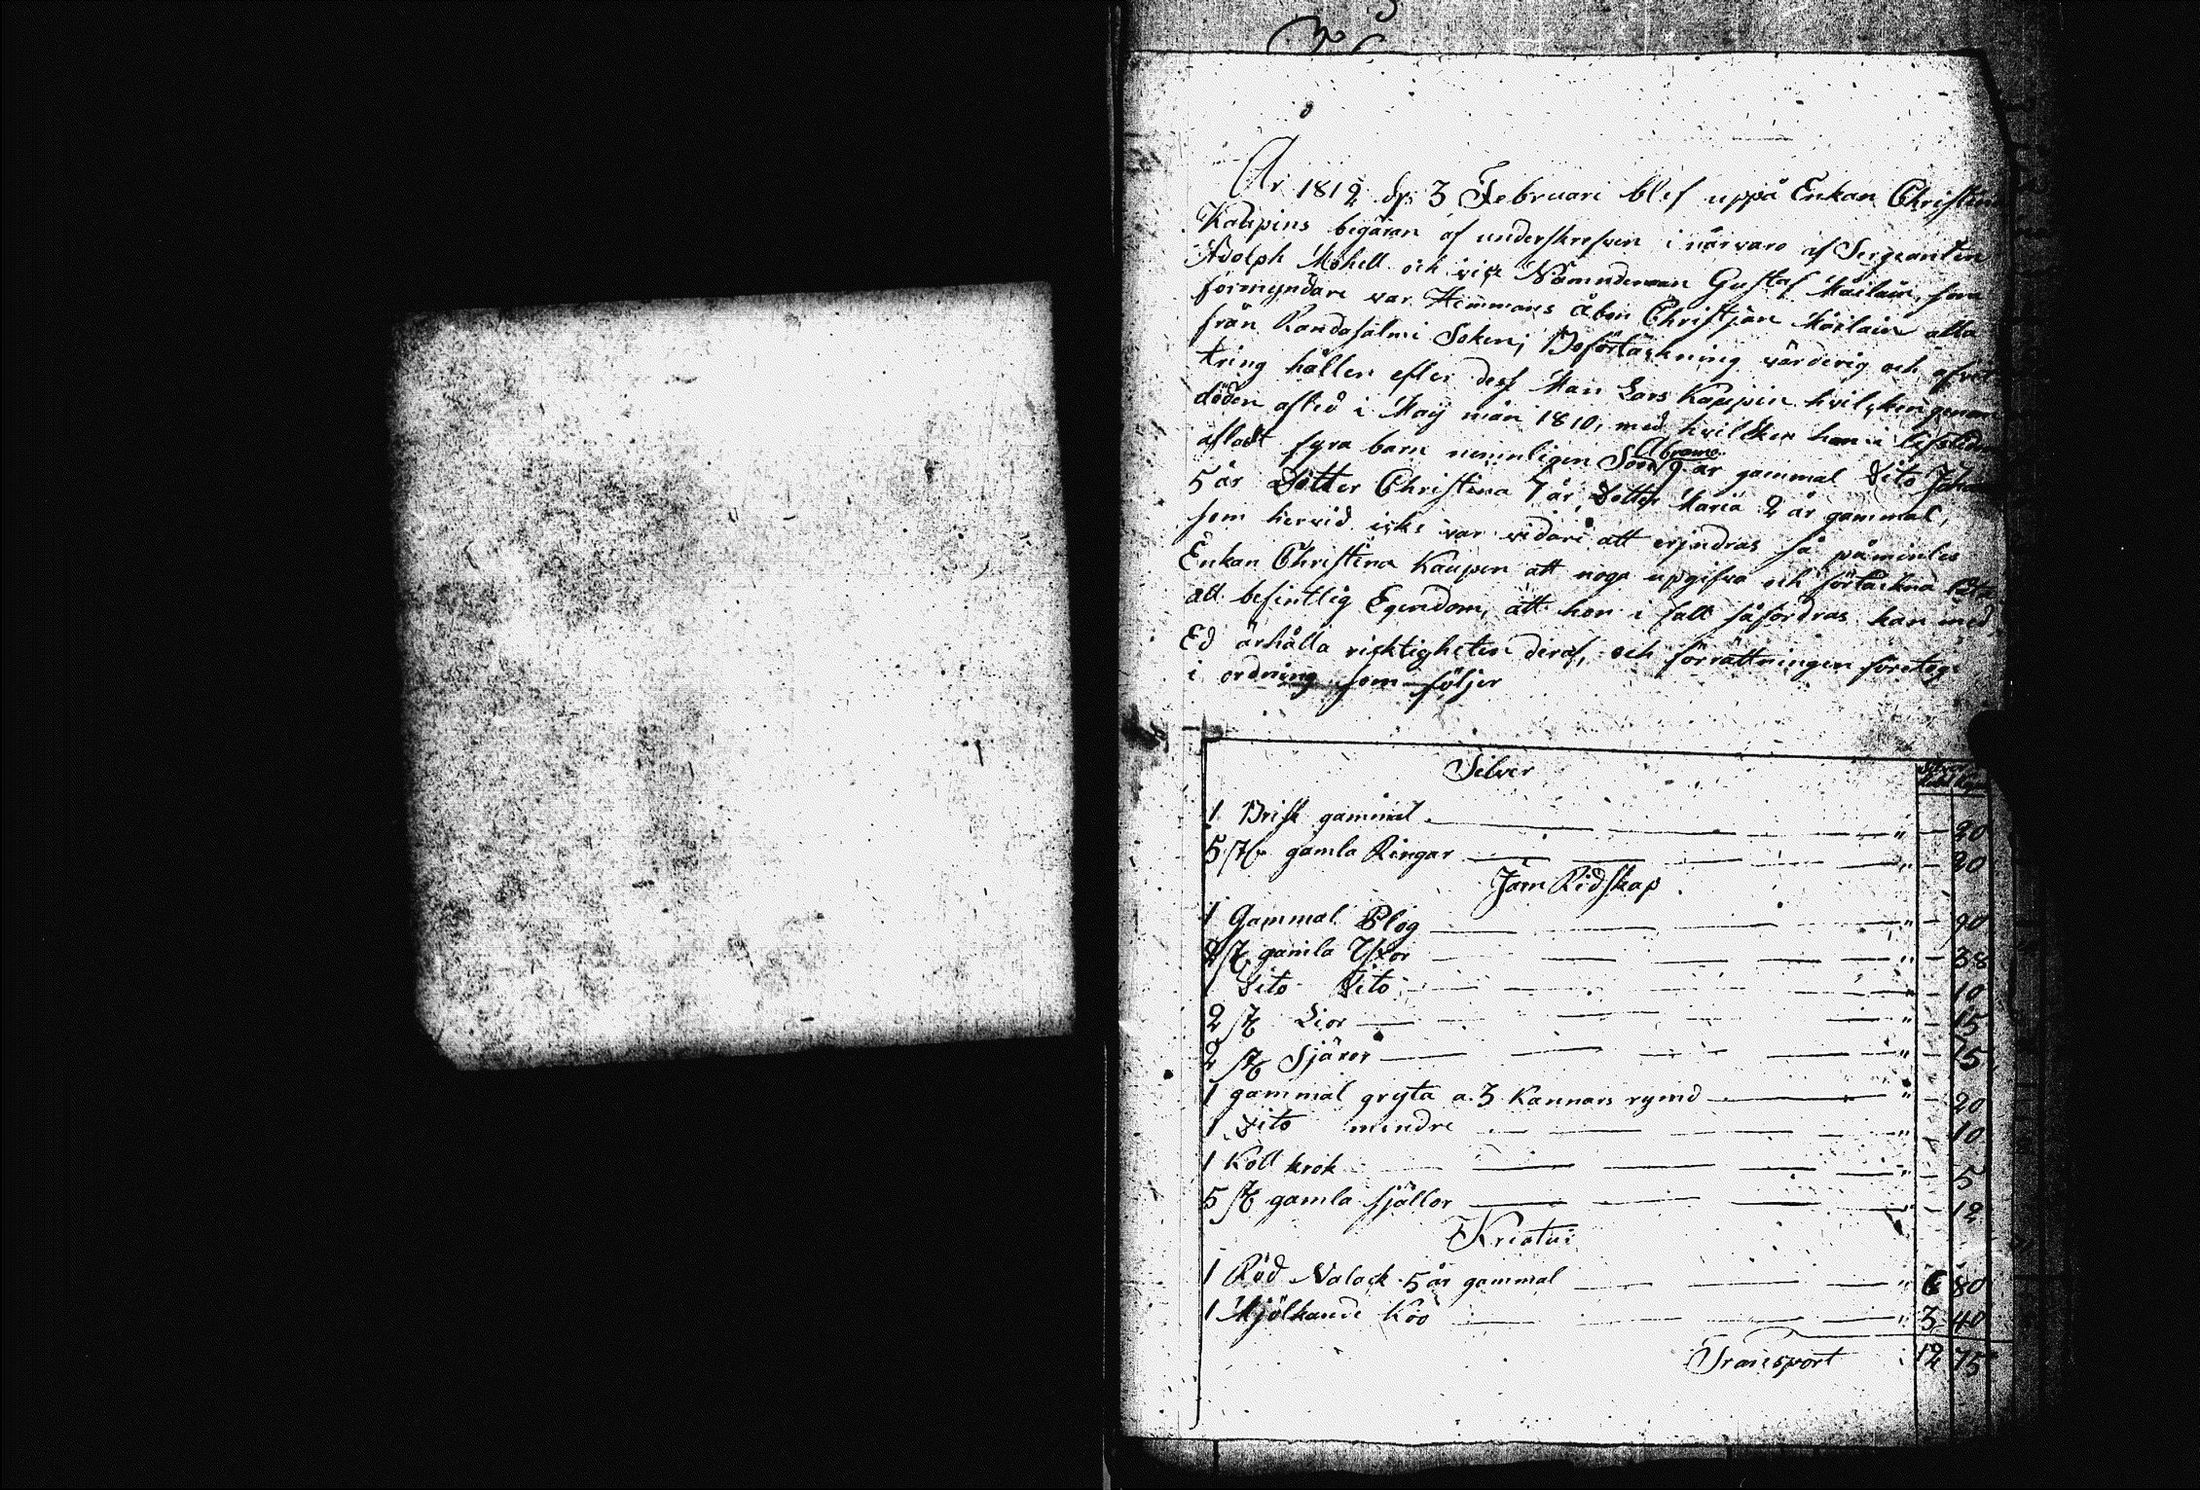 År 1812 d. 3 Februari blef uppå Enkan Christina
Kaupins begäran af underskrefven i närvaro af Sergeanten
Adolph Mohell och vice Nämndeman Gustaf som
förmyndare var Hemmans Åbon Christjan alla
från Randasalmi Soken; värderig och
tring hållen efter dess Man Lars Kaupin hvilcken genom
döden afled i Maij mån 1810, med hvilcken hon i lifstiden
aflat fyra barn nemnligen Son Abram 9 år gammal Dito Johan
5 år Dotter Christina 7 år, Dotter Maria 2 år gammal,
som hervid icke var vidare att erindras så påmintes
Enkan Christina Kaupin att noga upgifva och förtäckna låta
all befintlig Egendom, att hon i fall så fordras kan med
Ed ärhålla ricktigheten deraf, och förrättningen företogs
i ordning som följer
Silver
1 Brisk gammal " — 20
5 st gamla Ringar " — 20
Järn Ridskap
1 Gammal Plog " — 90
2 st gamla Yxor " — 38
1 Dito Dito " — 10
2 st Lior " — 15
2 st Sjäror " — 15
1 gammal gryta a 3 Kannors rymd " — 20
1 Dito mindre " — 10
1 Koll krok " — 5
5 st gamla själlor " — 12
Kreatur
1 Röd Valack 5 år gammal " 6 80
1 Mjölkande Koo " 3 40
Transport 12 75